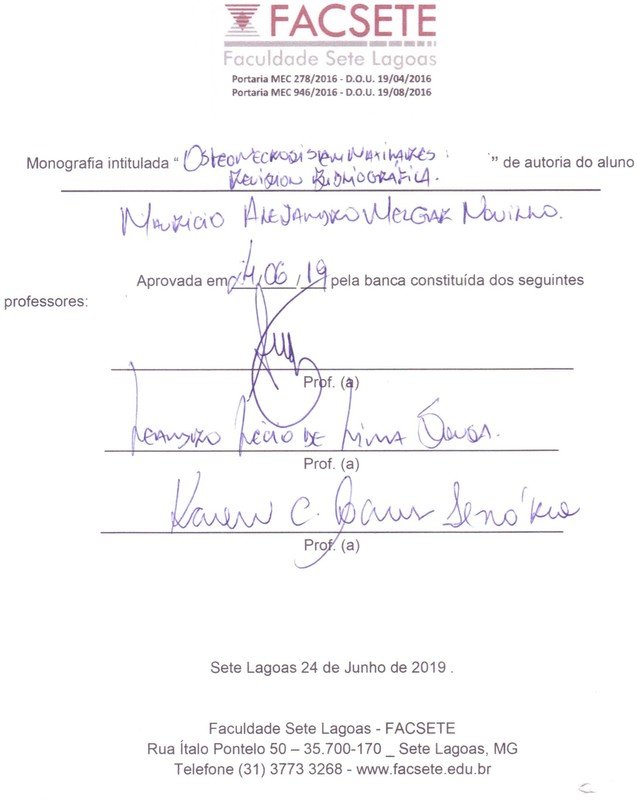 FACSETE
Faculdade Sete Lagoas
Portaria MEC 278/2016 - D.O.U. 19/04/2016
Portaria MEC 946/2016 - D.O.U. 19/08/2016
Monografia intitulada “ OSTEONECROSIS EN MAXILARES : ” de autoria do aluno
REVISION BIBLIOGRÁFICA.
MAURICIO ALEJANDRO MELGAR
Aprovada em 24, 06, 19 pela banca constituída dos seguintes
professores:
Prof. (a)
LEANDRO LÉCIO DE LIMA SOUSA.
Prof. (a)
Karen C.
Prof. (a)
Sete Lagoas 24 de Junho de 2019 .
Faculdade Sete Lagoas - FACSETE
Rua Ítalo Pontelo 50 – 35.700-170 _ Sete Lagoas, MG
Telefone (31) 3773 3268 - www.facsete.edu.br